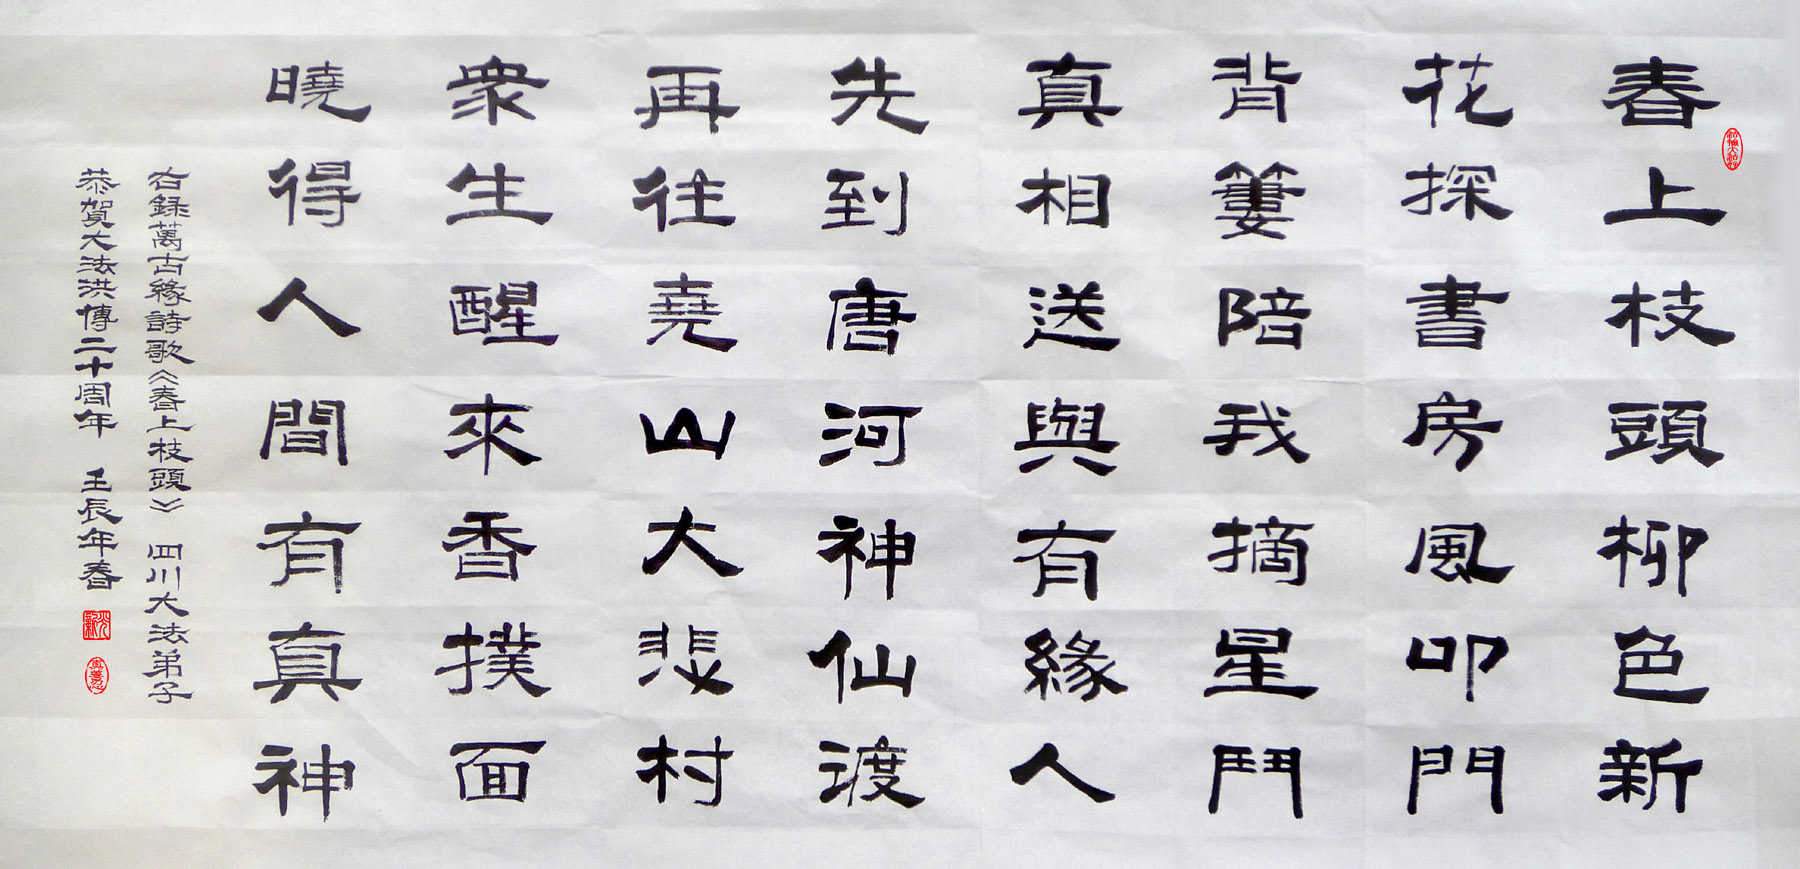 春上枝頭柳色新
花探書房風叩門
背簍陪我摘星鬥
真相送與有緣人
先到唐河神仙渡
再往堯山大悲村
衆生醒來香撲面
曉得人間有真神
右錄萬古緣詩歌《春上枝頭》 四川大法弟子
恭賀大法洪傳二十周年 壬辰年春